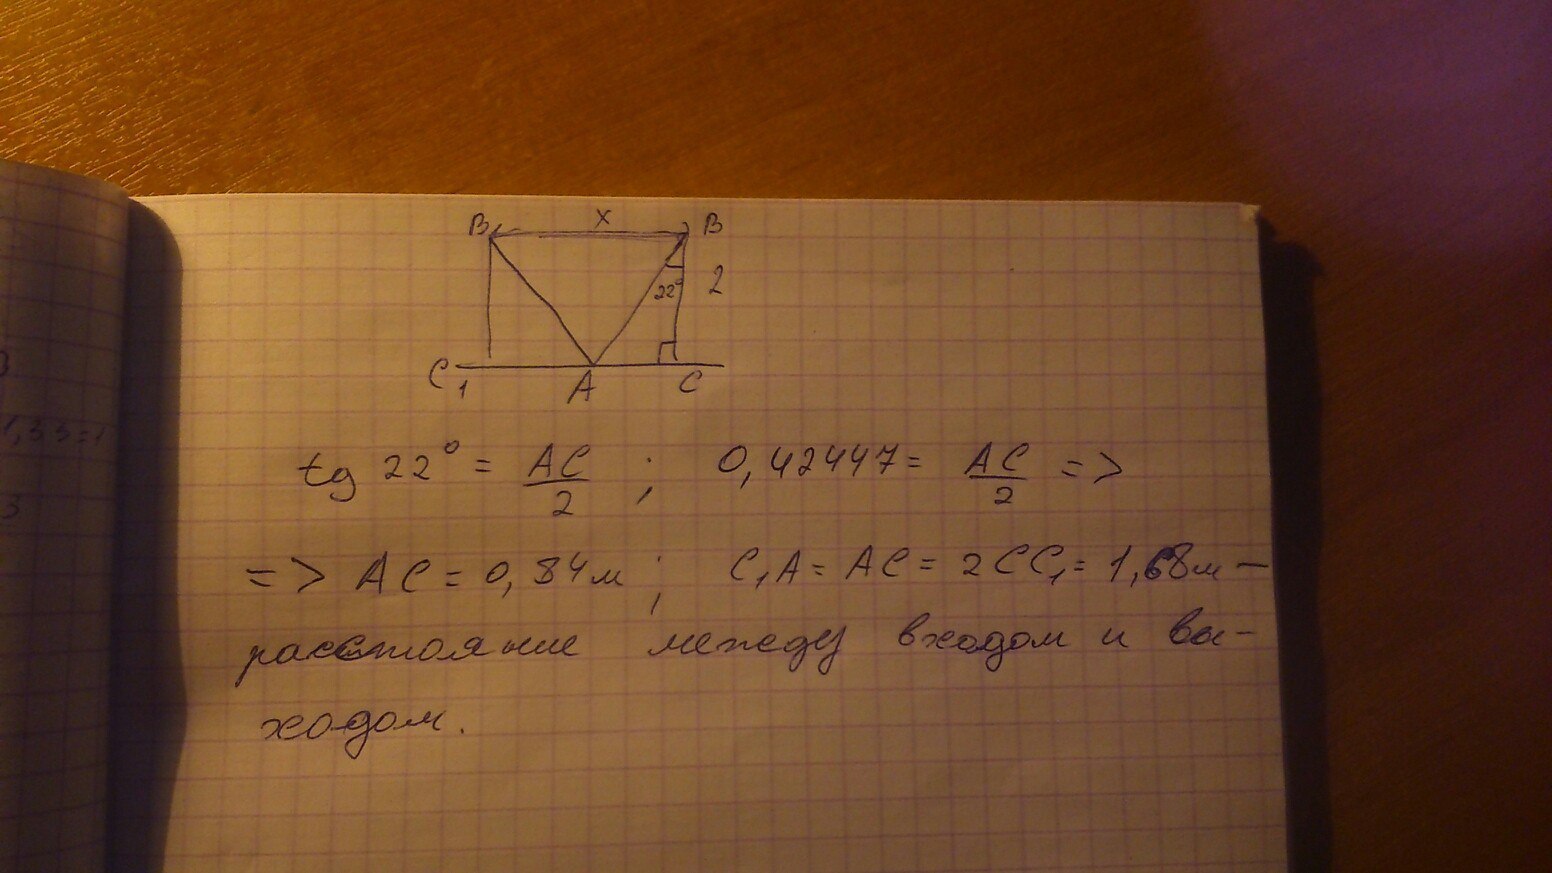 B x B
22° 2
C₁ A C
tg 22° = AC/2 ; 0,42447 = AC/2 =>
=> AC = 0,84м ; C₁A = AC = 2CC₁ = 1,68м –
расстояние между входом и вы-
ходом.